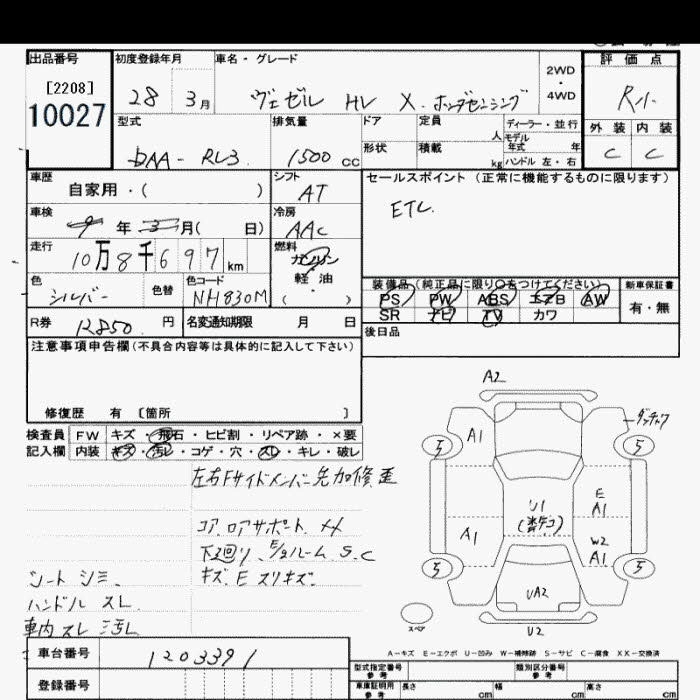 出品番号 初度登録年月 車名・グレード 評価点
[2208]
10027
28 3月 ヴェゼル HV X・ホンダセンシング 2WD・4WD R小
外装 内装
C C
型式 排気量 ドア 定員 人 ディーラー・並行
モデル年式 年
DAA-RU3 1500cc 形状 積載 kg ハンドル 左・右
車歴 シフト セールスポイント(正常に機能するものに限ります)
自家用・( ) AT ETC
車検 冷房
9年3月( 日) AAC
走行 燃料
10万8千697km ガソリン・軽油・( )
色 色替 色コード 装備品(純正品に限り○をつけてください) 新車保証書
シルバー NH830M PS PW ABS エアB AW 有・無
SR ナビ TV カワ
R券 12850円 名変通知期限 月 日 後日品
注意事項申告欄(不具合内容等は具体的に記入して下さい)
修復歴 有 [箇所 ]
検査員 FW キズ・飛石・ヒビ割・リペア跡・×要
記入欄 内装 キズ・汚レ・コゲ・穴・スレ・キレ・破レ
左右Fサイドメンバー先加修歪
コア、ロアサポート XX
下廻り、E/ルーム S.C
キズ E スリキズ
シート シミ
ハンドル スレ
車内 スレ 汚レ
A2
A1
5 5
U1
E
A1
A1
W2
A1
5 5
UA2
スペア
U2
A-キズ E-エクボ U-凹み W-補修跡 S-サビ C-腐食 XX-交換済
車台番号 1203391
登録番号
型式指定番号 参考 類別区分番号 参考
車庫証明用 参考 長さ cm 幅 cm 高さ cm